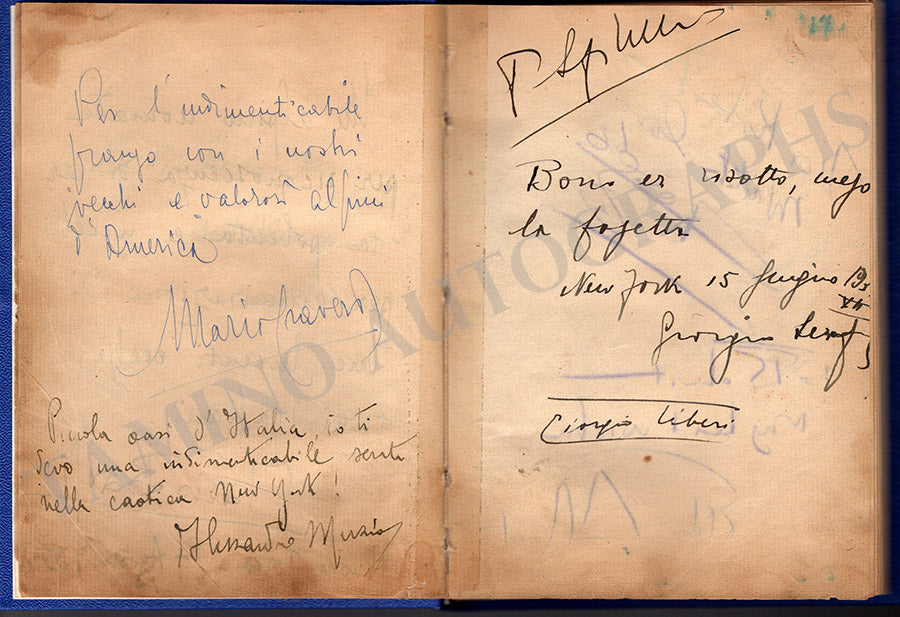 Per l'indimenticabile
pranzo con i nostri
vecchi e valorosi alpini
d'America
Mario
Piccola oasi d'Italia, io ti
devo una indimenticabile serata
nella caotica New York!
Alessandro
Bono er risotto, mejo
la fojetta
New York 15 Giugno
Giorgio
Giorgio Liberi
TAMINO AUTOGRAPHS